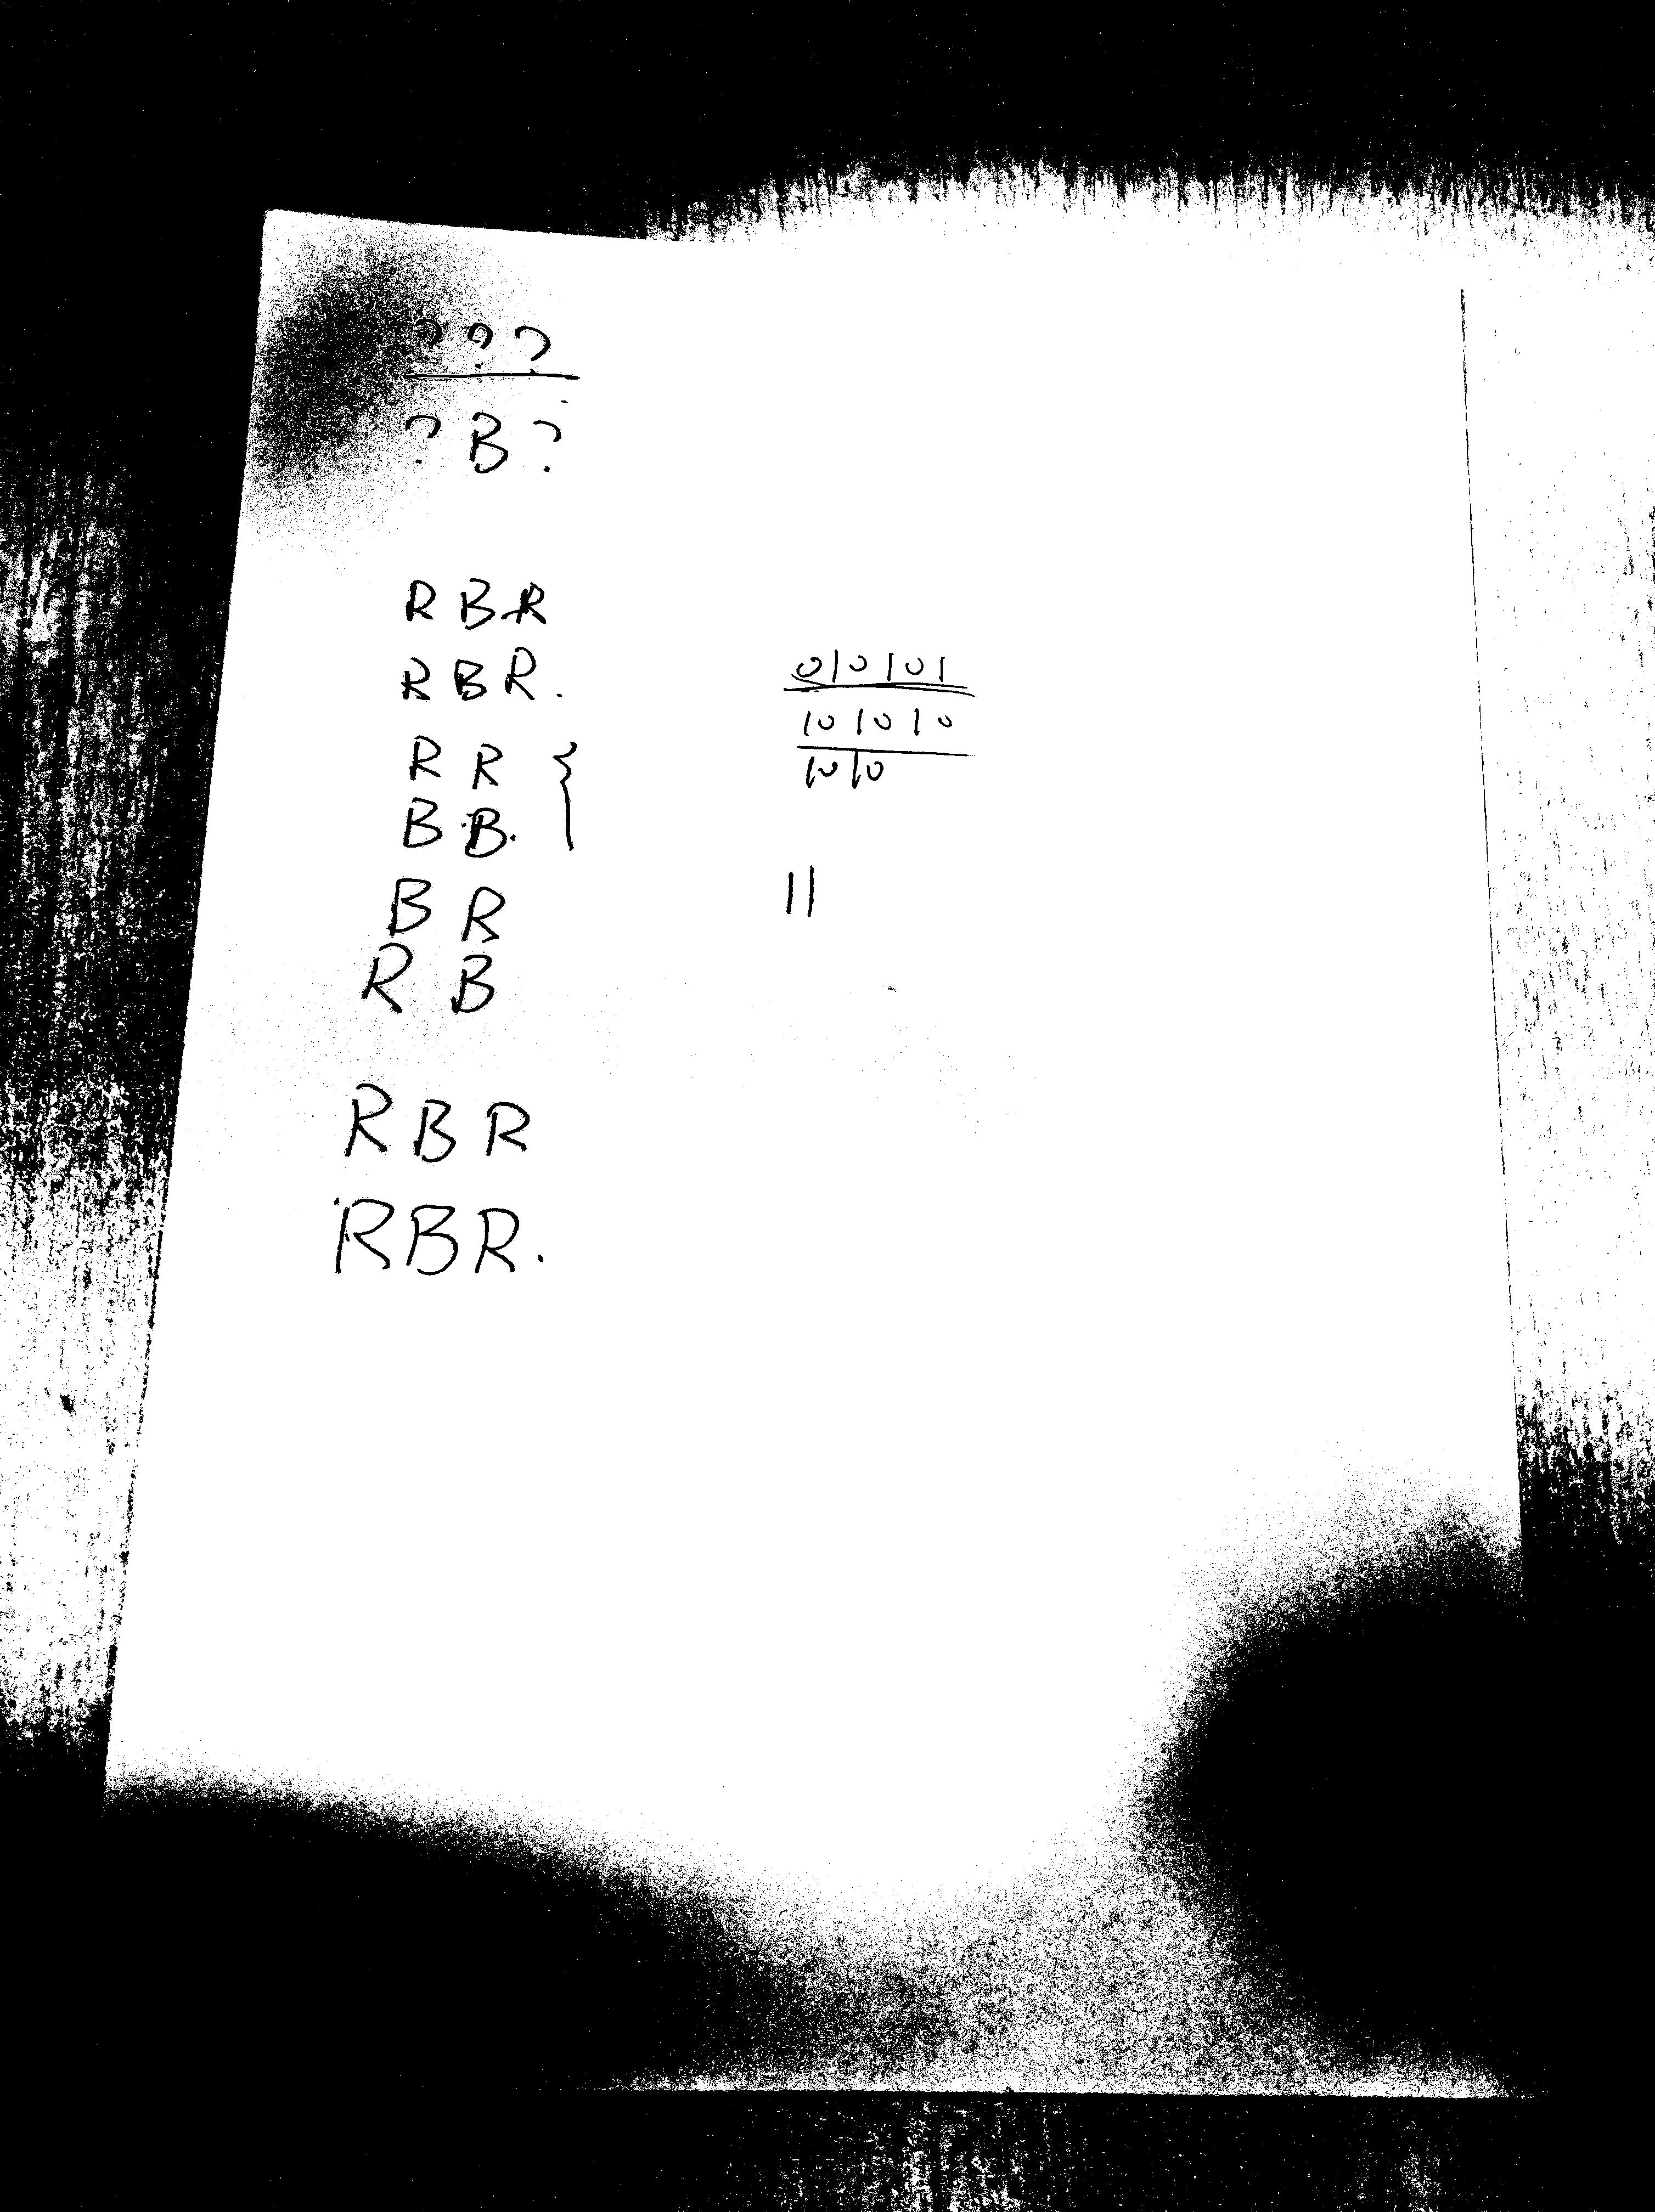 ? ? ?
? B ?
R B R
R B R.
R R
B B.
B R
R B
R B R
R B R.
010101
101010
1010
11